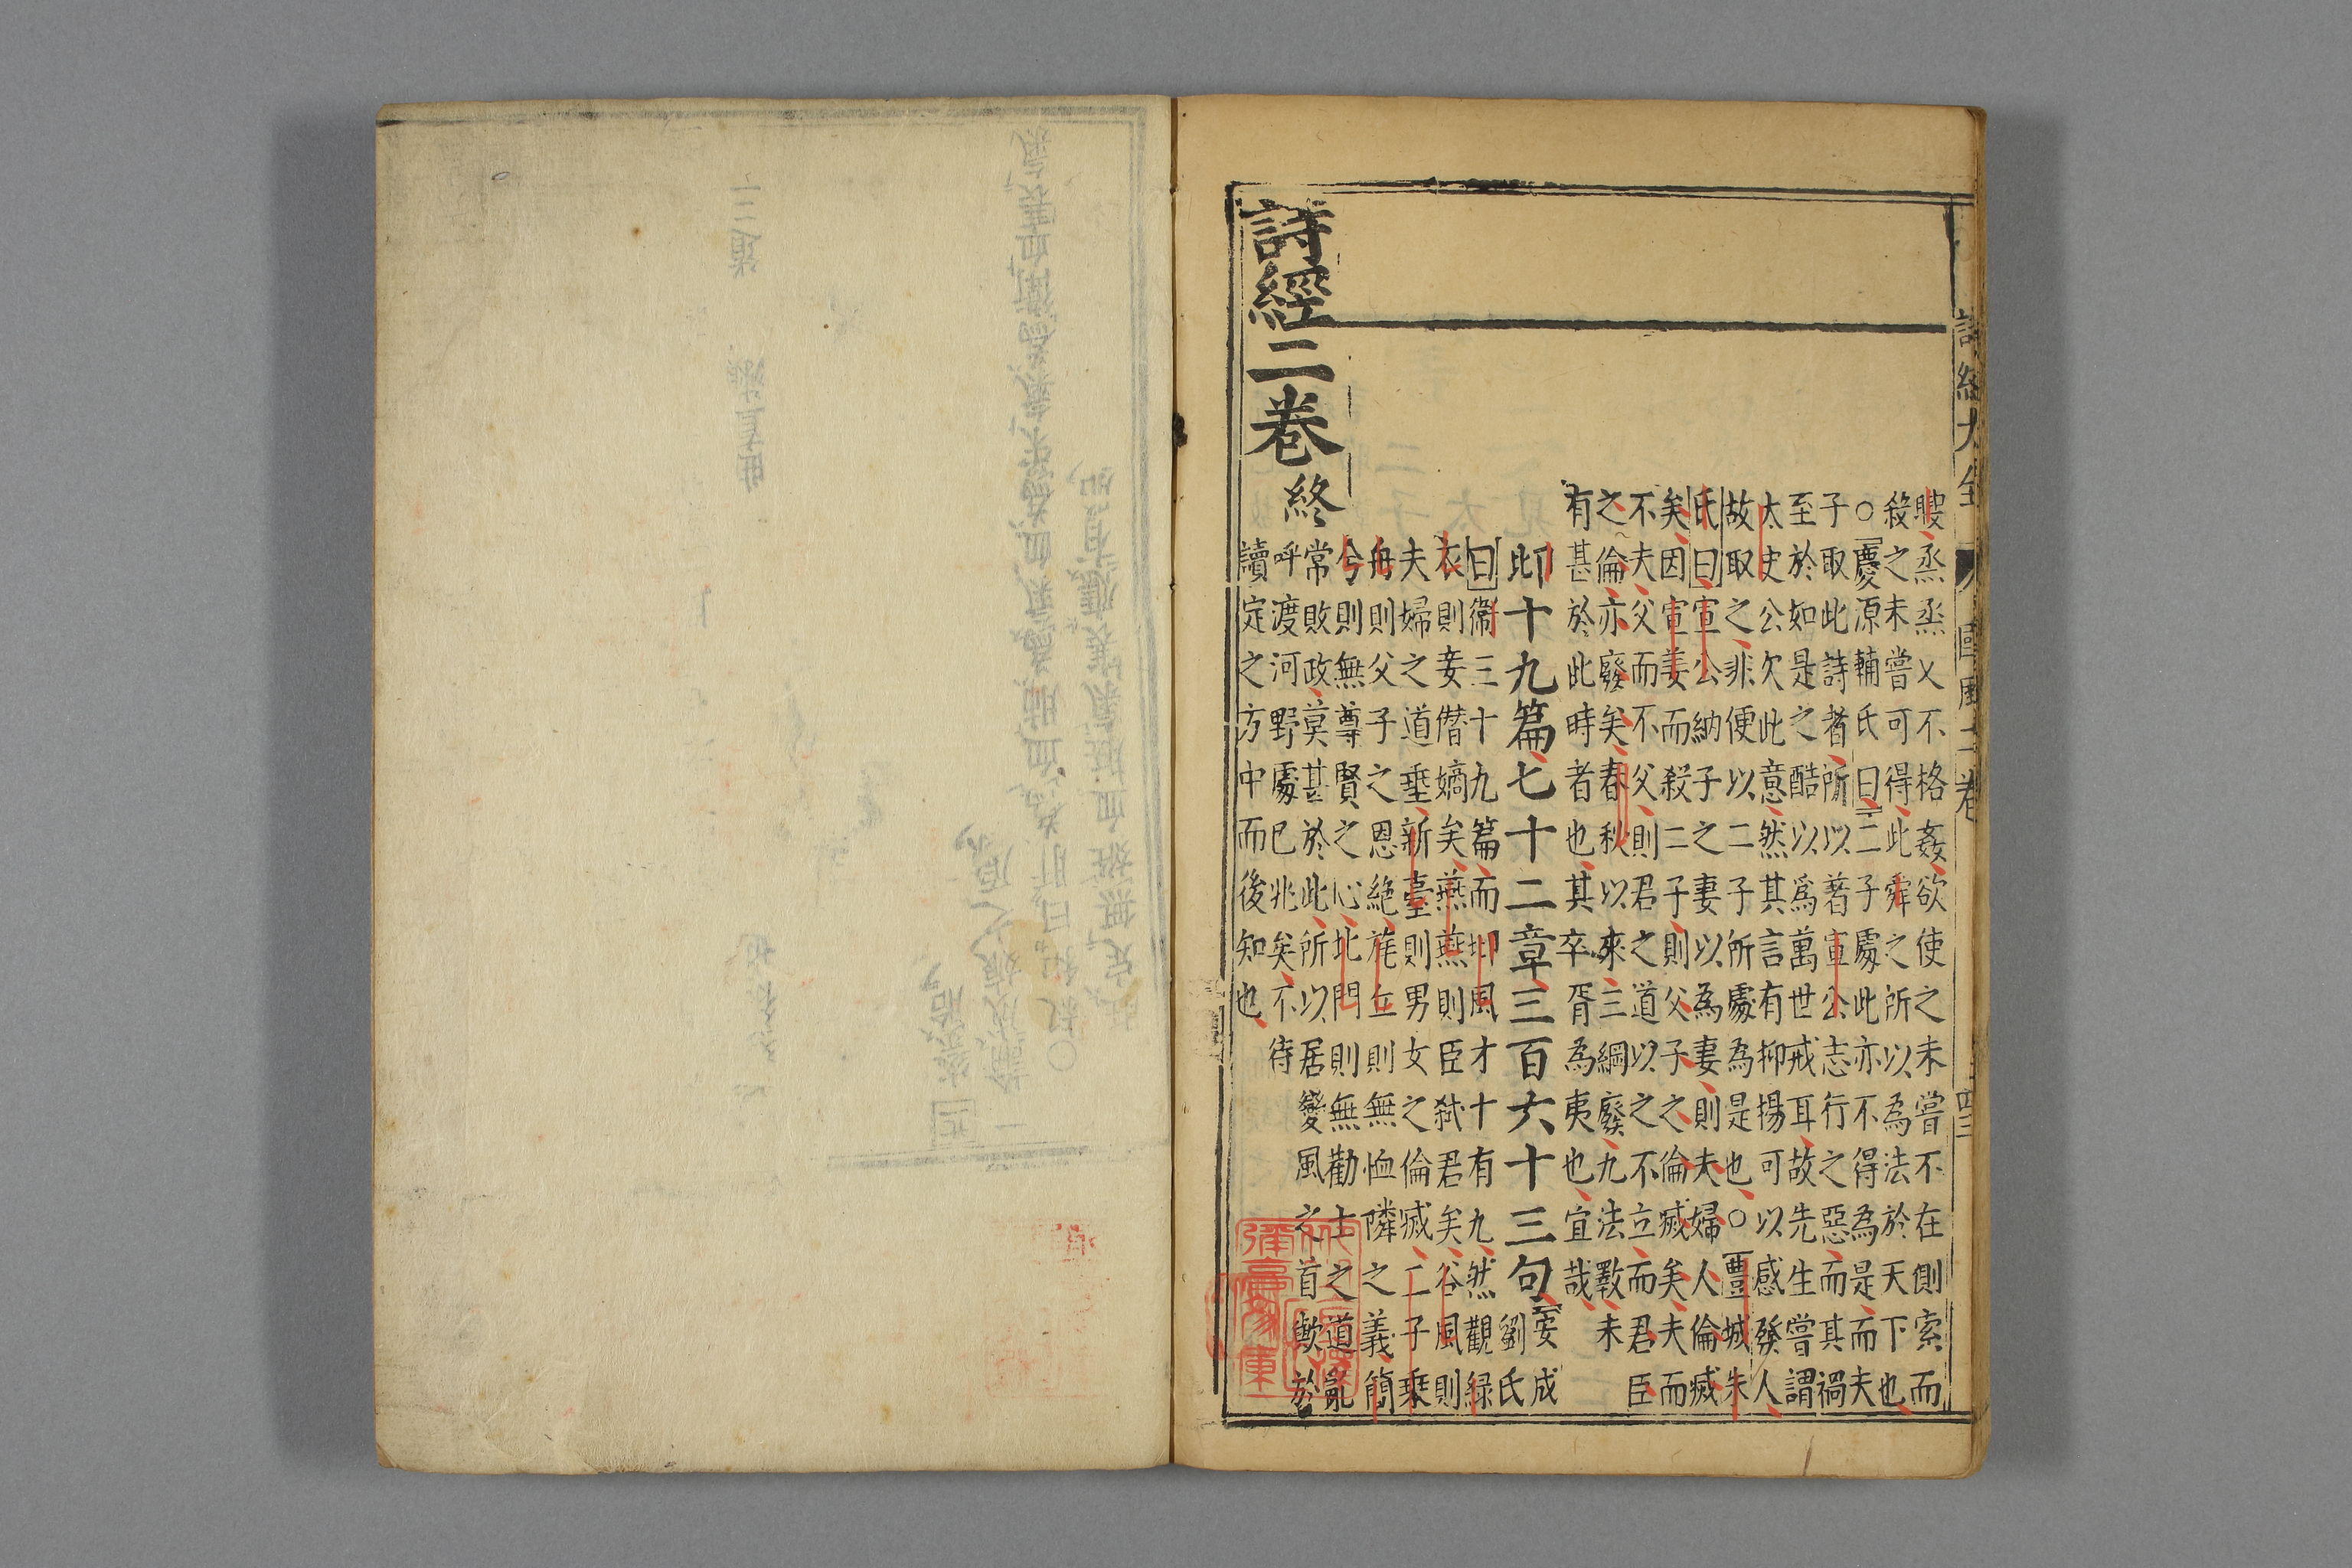 瞍烝烝乂不格姦欲使之未嘗不在側索而
殺之未嘗可得此舜之所以為法於天下也
○慶源輔氏曰二子處此亦不得為是而夫
子取此詩者所以著宣公志行之惡而其禍
至於如是之酷以為萬世戒耳故先生嘗謂
太史公欠此意然其言有抑揚可以感發人
故取之非便以二子所處為是也○豐城朱
氏曰宣公納子之妻以為妻則夫婦人倫滅
矣因宣姜而殺二子則父子之倫滅矣夫而
不夫父而不父則君之道以之不立而君臣
之倫亦廢矣春秋以來三綱廢九法斁未
有甚於此時者也其卒胥為夷也宜哉
邶十九篇七十二章三百六十三句
安成
劉氏
曰衛三十九篇而邶風才十有九然觀綠
衣則妾僭嫡矣燕燕則臣弒君矣谷風則
夫婦之道乖新臺則男女之倫滅二子乘
舟則父子之恩絕旄丘則無恤隣之義簡
兮則無尊賢之心北門則無勸士之道亂
常敗政莫甚於此所以居變風之首歟於
呼渡河野處已兆矣不待
讀定之方中而後知也
詩經二卷終